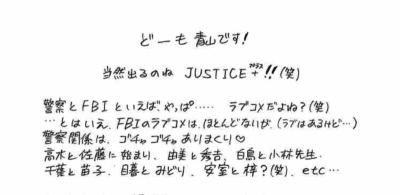 どーも青山です!
当然出るのね JUSTICE+プラス!!(笑)
警察とFBIといえばやっぱ…… ラブコメだよね?(笑)
…とはいえ、FBIのラブコメは、ほとんどないが、(ラブはあるけど…)
警察関係は、ゴチャゴチャありまくり♡
高木と佐藤に始まり、由美と秀吉、白鳥と小林先生、
千葉と苗子、目暮とみどり、安室と梓?(笑)、etc…